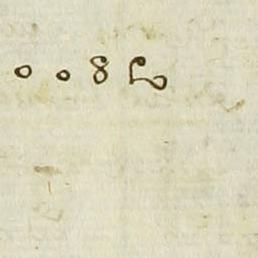 o o 8